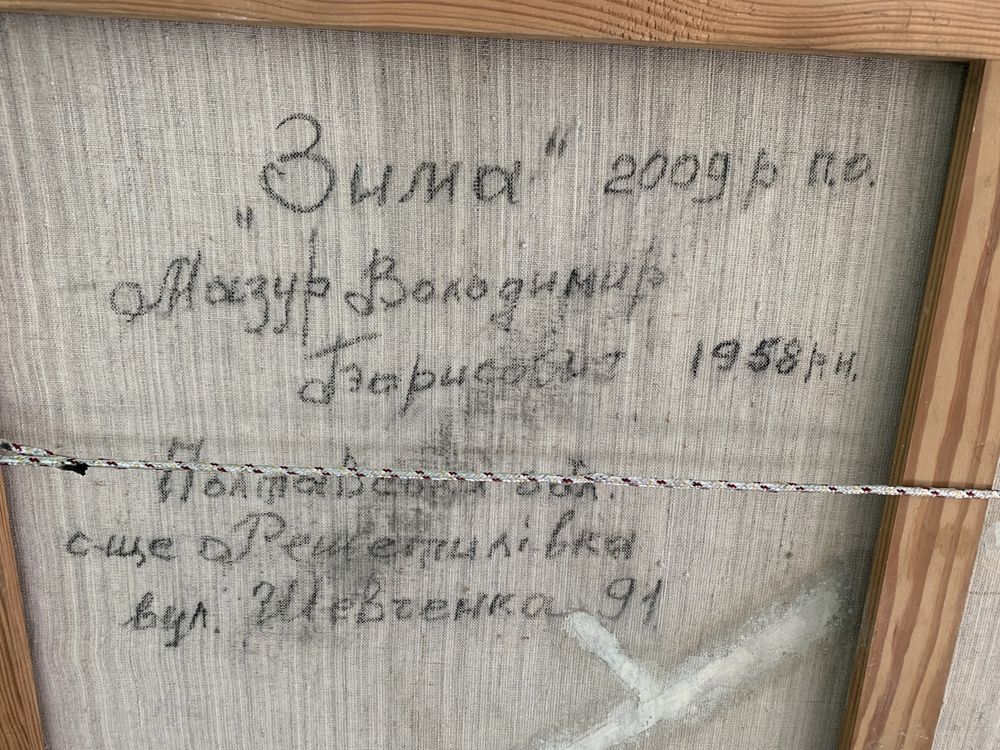 „Зима" 2009 р п.о.
Мазур Володимир
Борисович 1958 р.н.
Полтавська обл.
с-ще Решетилівка
вул. Шевченка 91